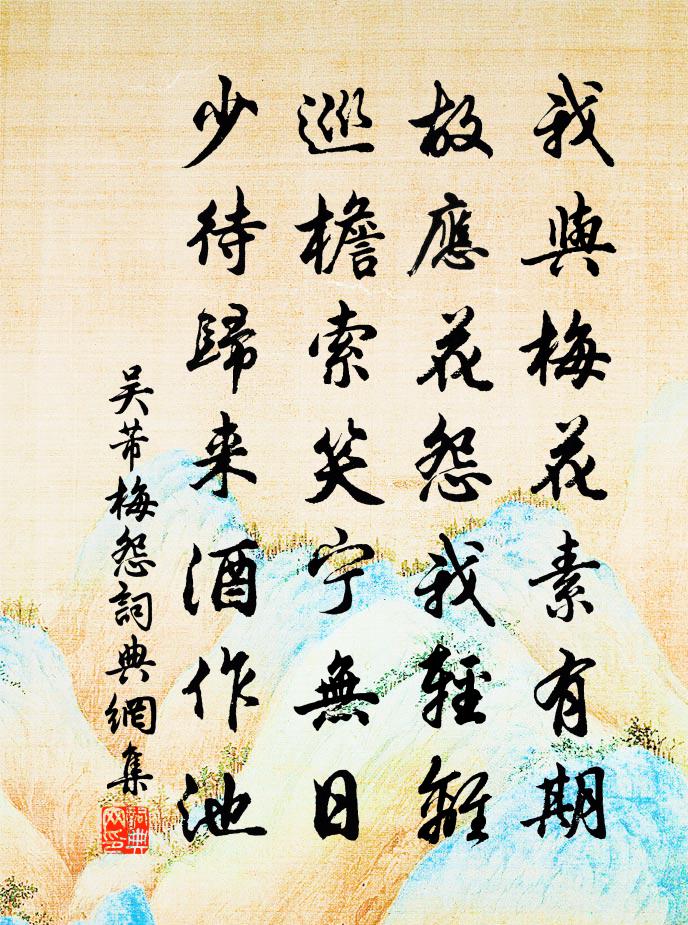 我與梅花素有期
故應花怨我輕離
巡檐索笑宁無日
少待歸来酒作池
吴芾梅怨詞典網集
詞典網印